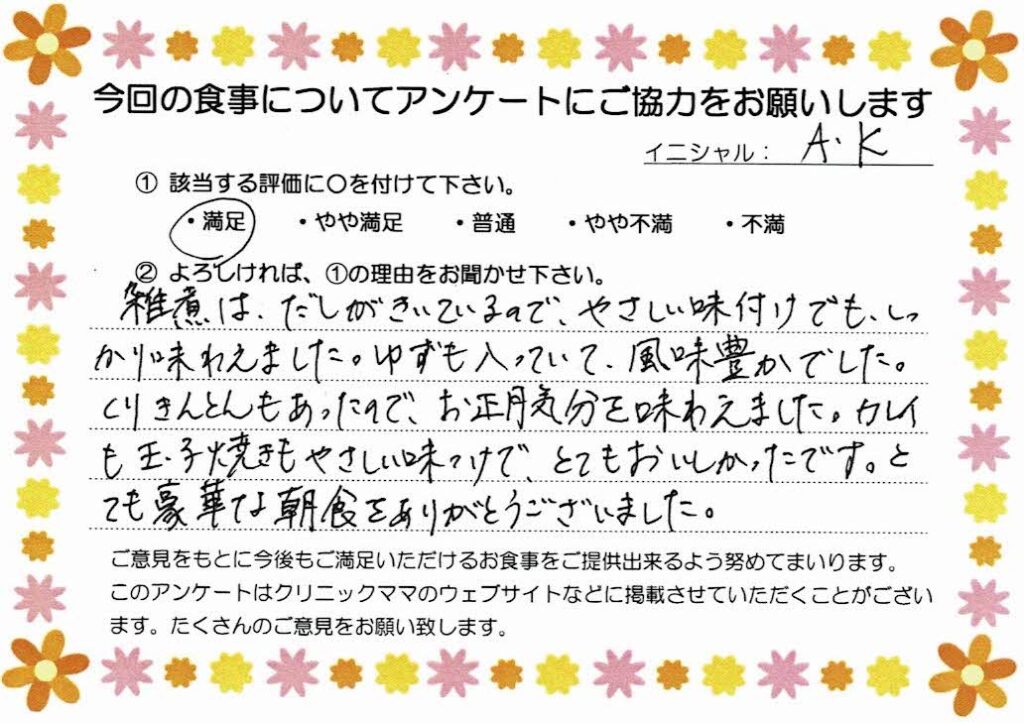 今回の食事についてアンケートにご協力をお願いします
イニシャル： A.K
① 該当する評価に〇を付けて下さい。
・満足 ・やや満足 ・普通 ・やや不満 ・不満
② よろしければ、①の理由をお聞かせ下さい。
雑煮は、だしがきいているので、やさしい味付けでも、しっ
かり味わえました。ゆずも入っていて、風味豊かでした。
くりきんとんもあったので、お正月気分を味わえました。カレイ
も玉子焼きもやさしい味つけで、とてもおいしかったです。と
ても豪華な朝食をありがとうございました。
ご意見をもとに今後もご満足いただけるお食事をご提供出来るよう努めてまいります。
このアンケートはクリニックママのウェブサイトなどに掲載させていただくことがござい
ます。たくさんのご意見をお願い致します。